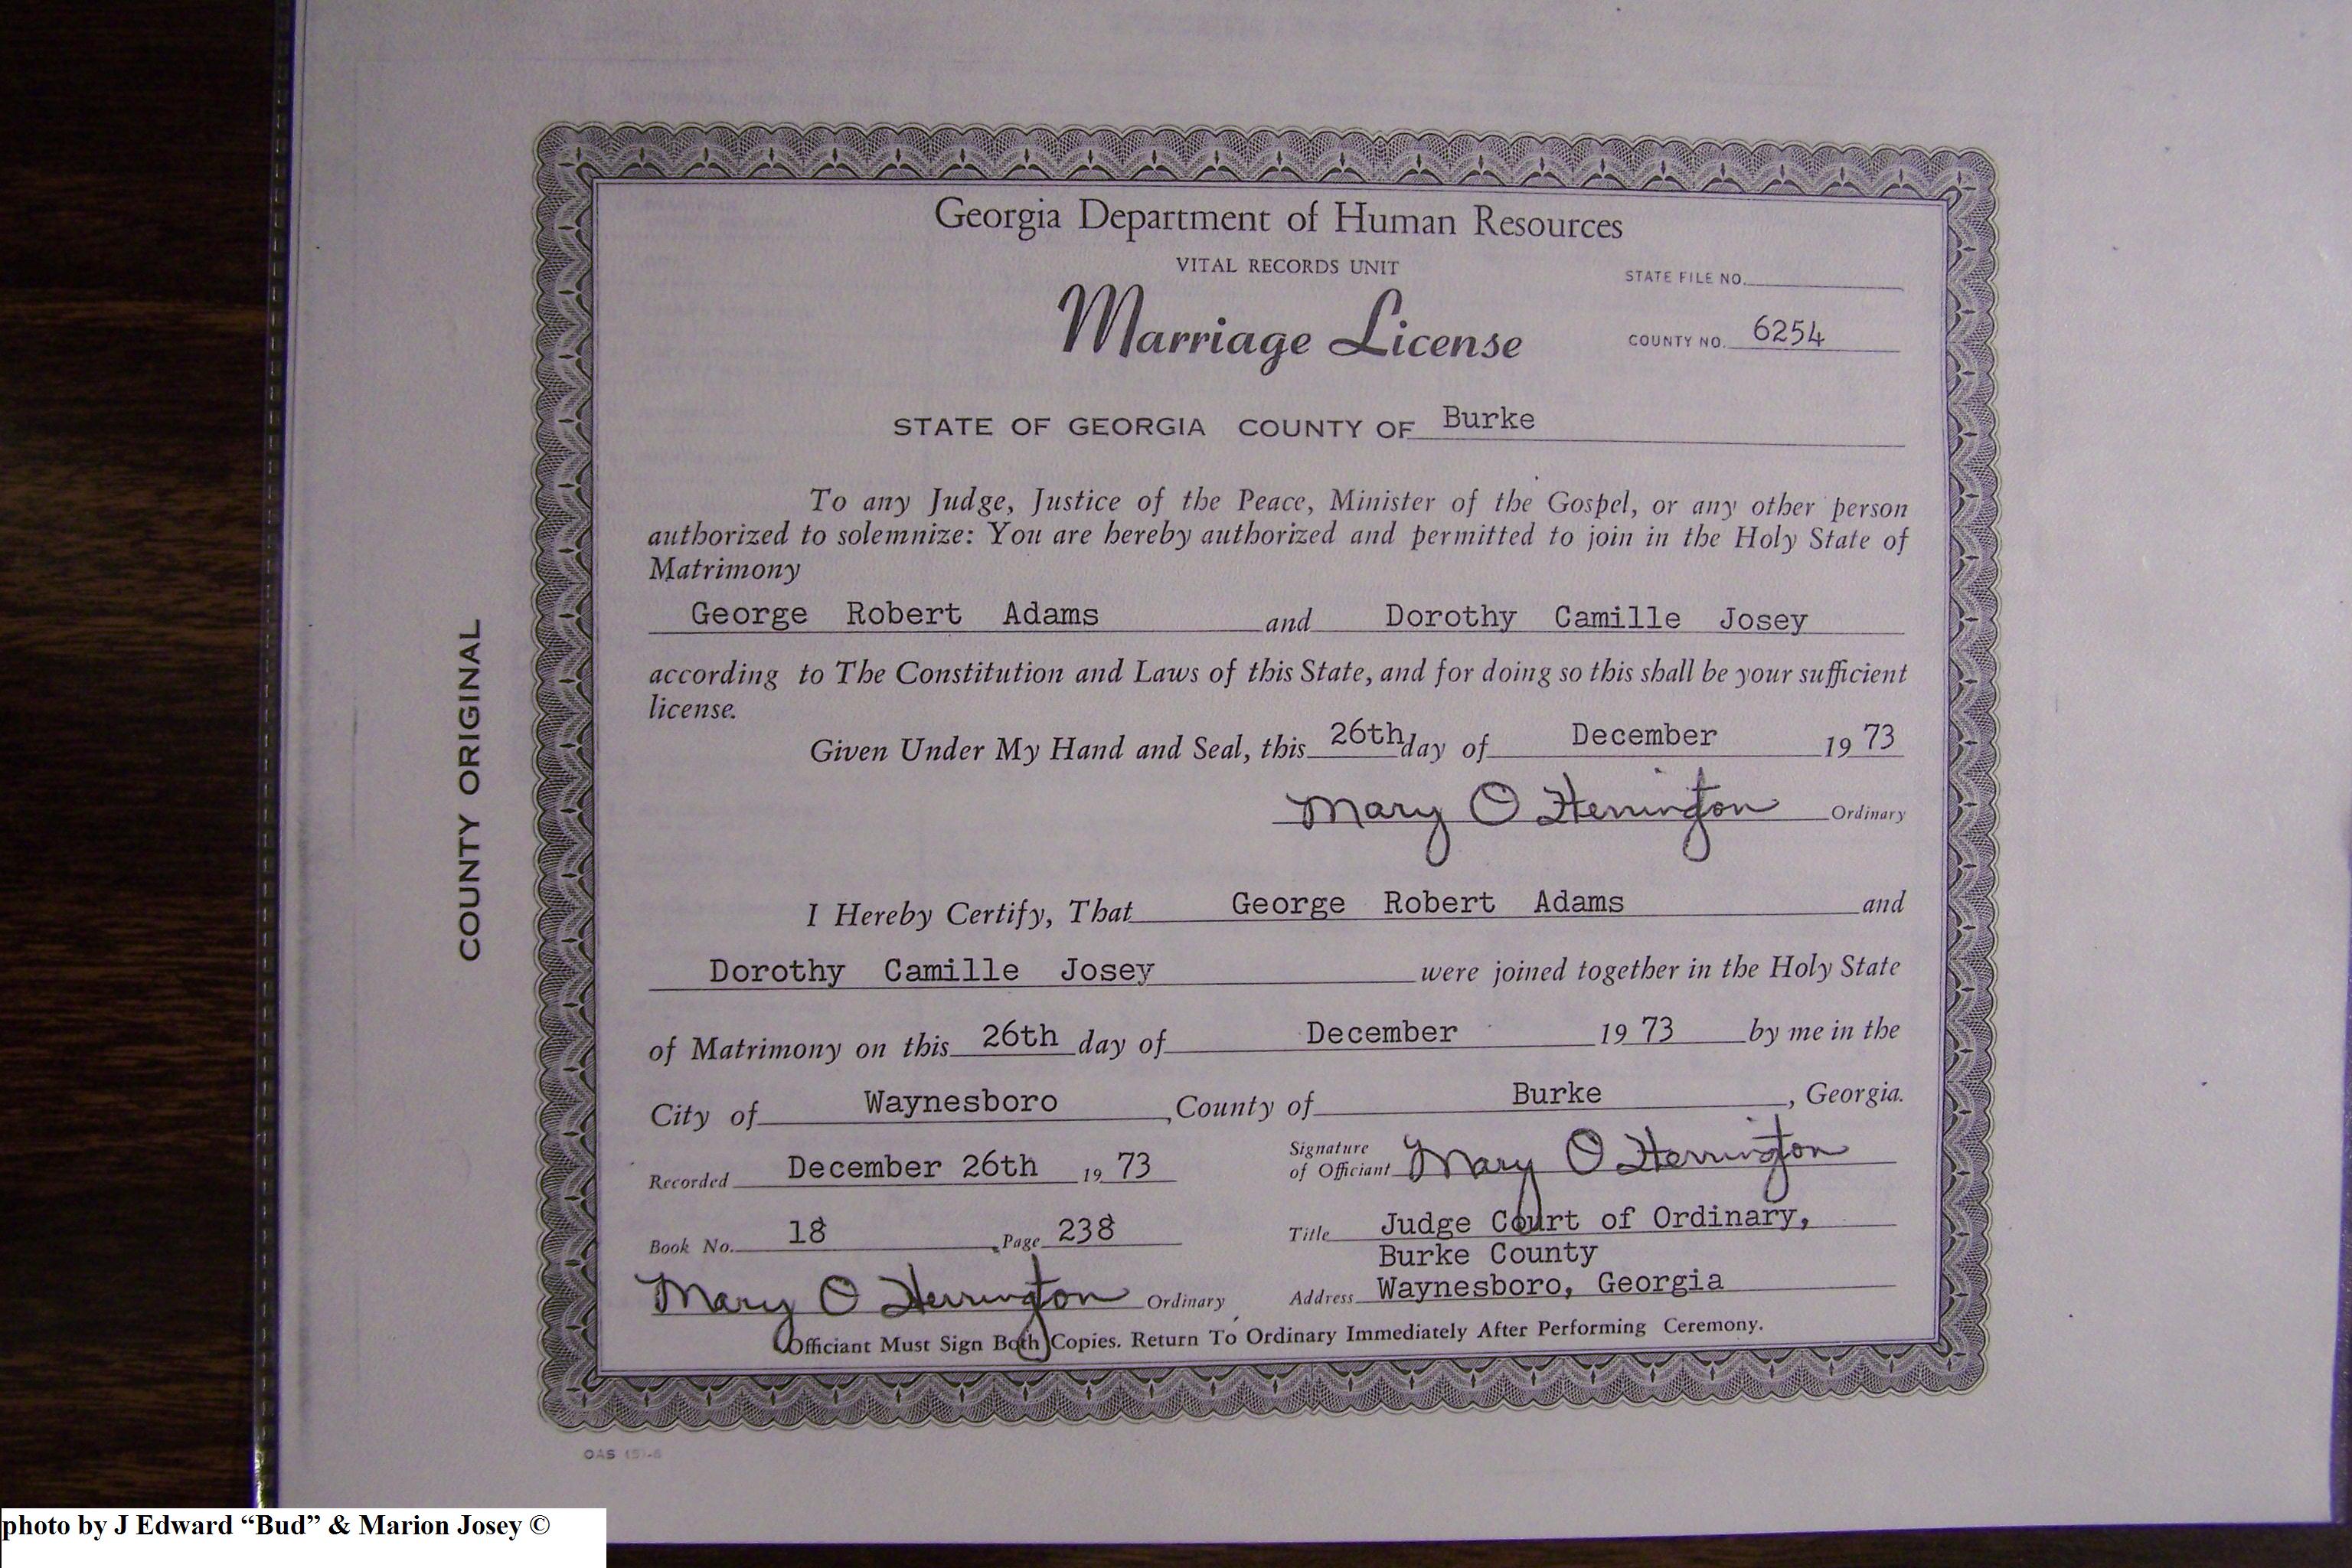 Georgia Department of Human Resources
VITAL RECORDS UNIT
STATE FILE NO.
Marriage License
COUNTY NO. 6254
STATE OF GEORGIA COUNTY OF Burke
To any Judge, Justice of the Peace, Minister of the Gospel, or any other person
authorized to solemnize: You are hereby authorized and permitted to join in the Holy State of
Matrimony
George Robert Adams and Dorothy Camille Josey
according to The Constitution and Laws of this State, and for doing so this shall be your sufficient
license.
Given Under My Hand and Seal, this 26th day of December 19 73
Mary O Herrington Ordinary
I Hereby Certify, That George Robert Adams and
Dorothy Camille Josey were joined together in the Holy State
of Matrimony on this 26th day of December 19 73 by me in the
City of Waynesboro, County of Burke, Georgia.
Recorded December 26th 19 73
Signature
of Officiant Mary O Herrington
Book No. 18 Page 238
Title Judge Court of Ordinary,
Burke County
Mary O Herrington Ordinary
Address Waynesboro, Georgia
Officiant Must Sign Both Copies. Return To Ordinary Immediately After Performing Ceremony.
COUNTY ORIGINAL
photo by J Edward “Bud” & Marion Josey ©